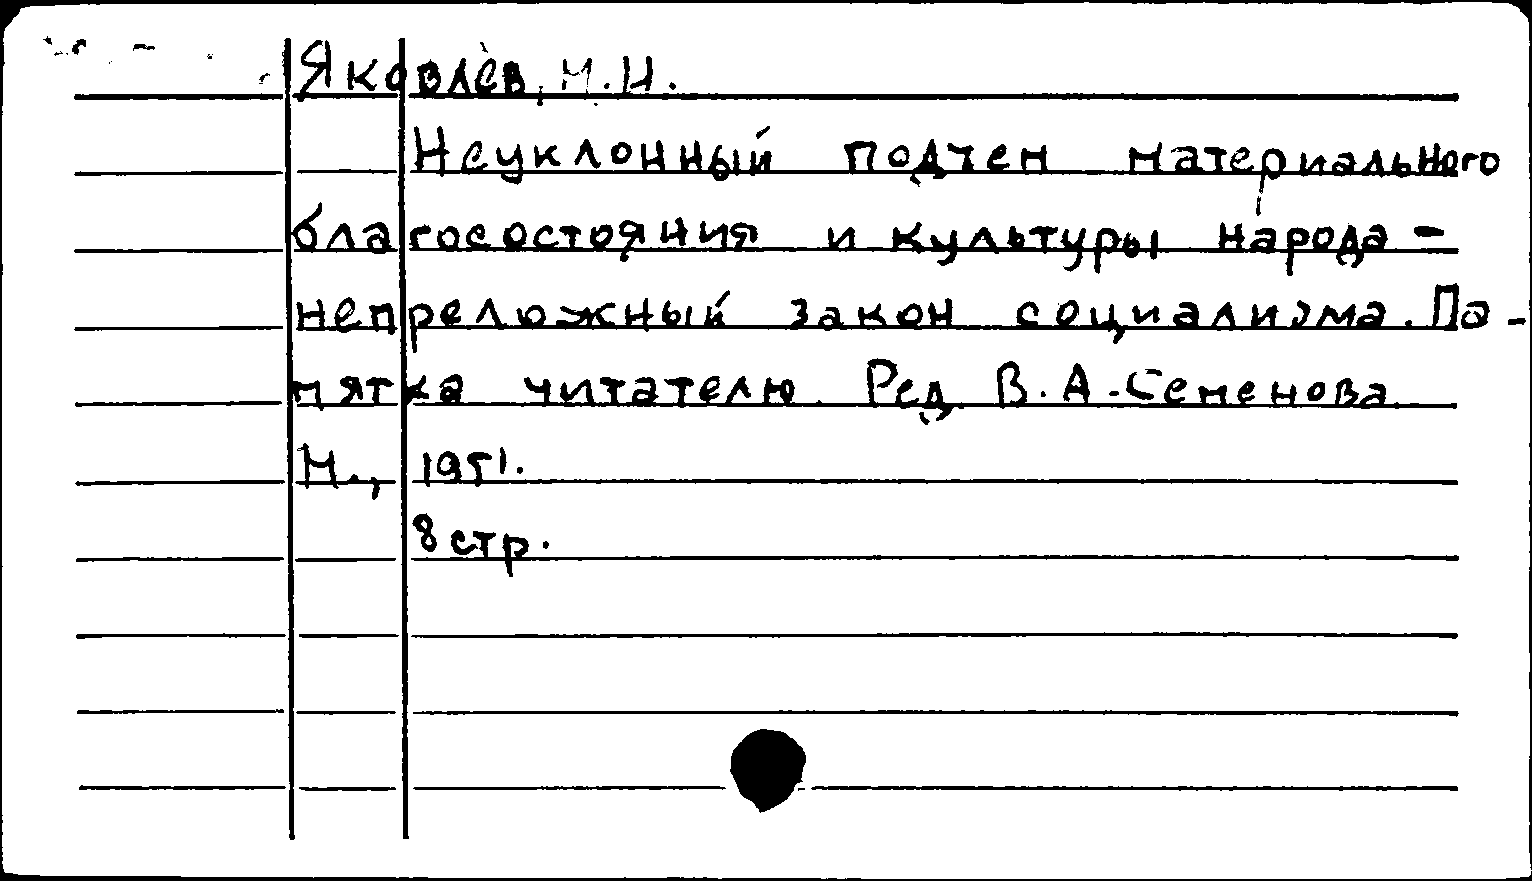 Яковлев, М.И.
Неуклонный подъем материального
благосостояния и культуры народа -
непреложный закон социализма. Па-
мятка читателю. Ред. В.А. Семенова.
М., 1951.
8 стр.